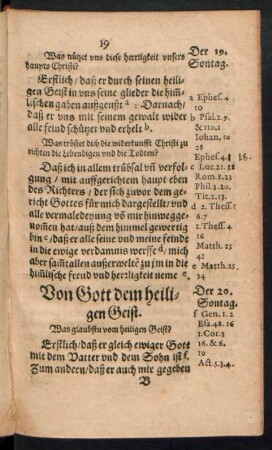 19
Was nützet vns diese herrligkeit vnsers
haupts Christi?
Der 19.
Sontag.
Erstlich/ daß er durch seinen heili-
gen Geist in vns seine glieder die him̃-
lischen gaben außgeusst a: Darnach/
daß er vns mit seinem gewalt wider
alle feind schützet vnd erhelt b.
a Ephes. 4
10
b Psal. 2.9.
& 110.1
Iohan. 10
28
Was tröstet dich die widerkunfft Christi zu
richten die Lebendigen vnd die Todten?
Ephes. 4.
Daß ich in allem trübsal vñ verfol-
gung/ mit auffgerichtem haupt eben
des Richters / der sich zuvor dem ge-
richt Gottes für mich dargestellt/ vnd
alle vermaledeyung võ mir hinwegge-
nommen hat/ auß dem himmel gewertig
bin c/ daß er alle seine vnd meine feinde
in die ewige verdamnis werffe d/ mich
aber sampt allen außerwelte zu jm in die
him̃lische freud vnd herrligkeit neme e.
c Luc. 21.28
Rom. 8.23
Phil. 3.20.
Tit. 2.13.
d 2. Thess. 1
6.7
1. Thess. 4
16
Matth. 25
41
e Matth. 25
34
Von Gott dem heili-
gen Geist.
Der 20.
Sontag.
Was glaubstu vom heiligen Geist?
Erstlich/ daß er gleich ewiger Gott
mit dem Vatter vnd dem Sohn ist f.
Zum andern/ daß er auch mir gegeben
f Gen. 1.2
Esa. 48.16
1. Cor. 3
16. & 6.
19
Act. 5.3.4.
B